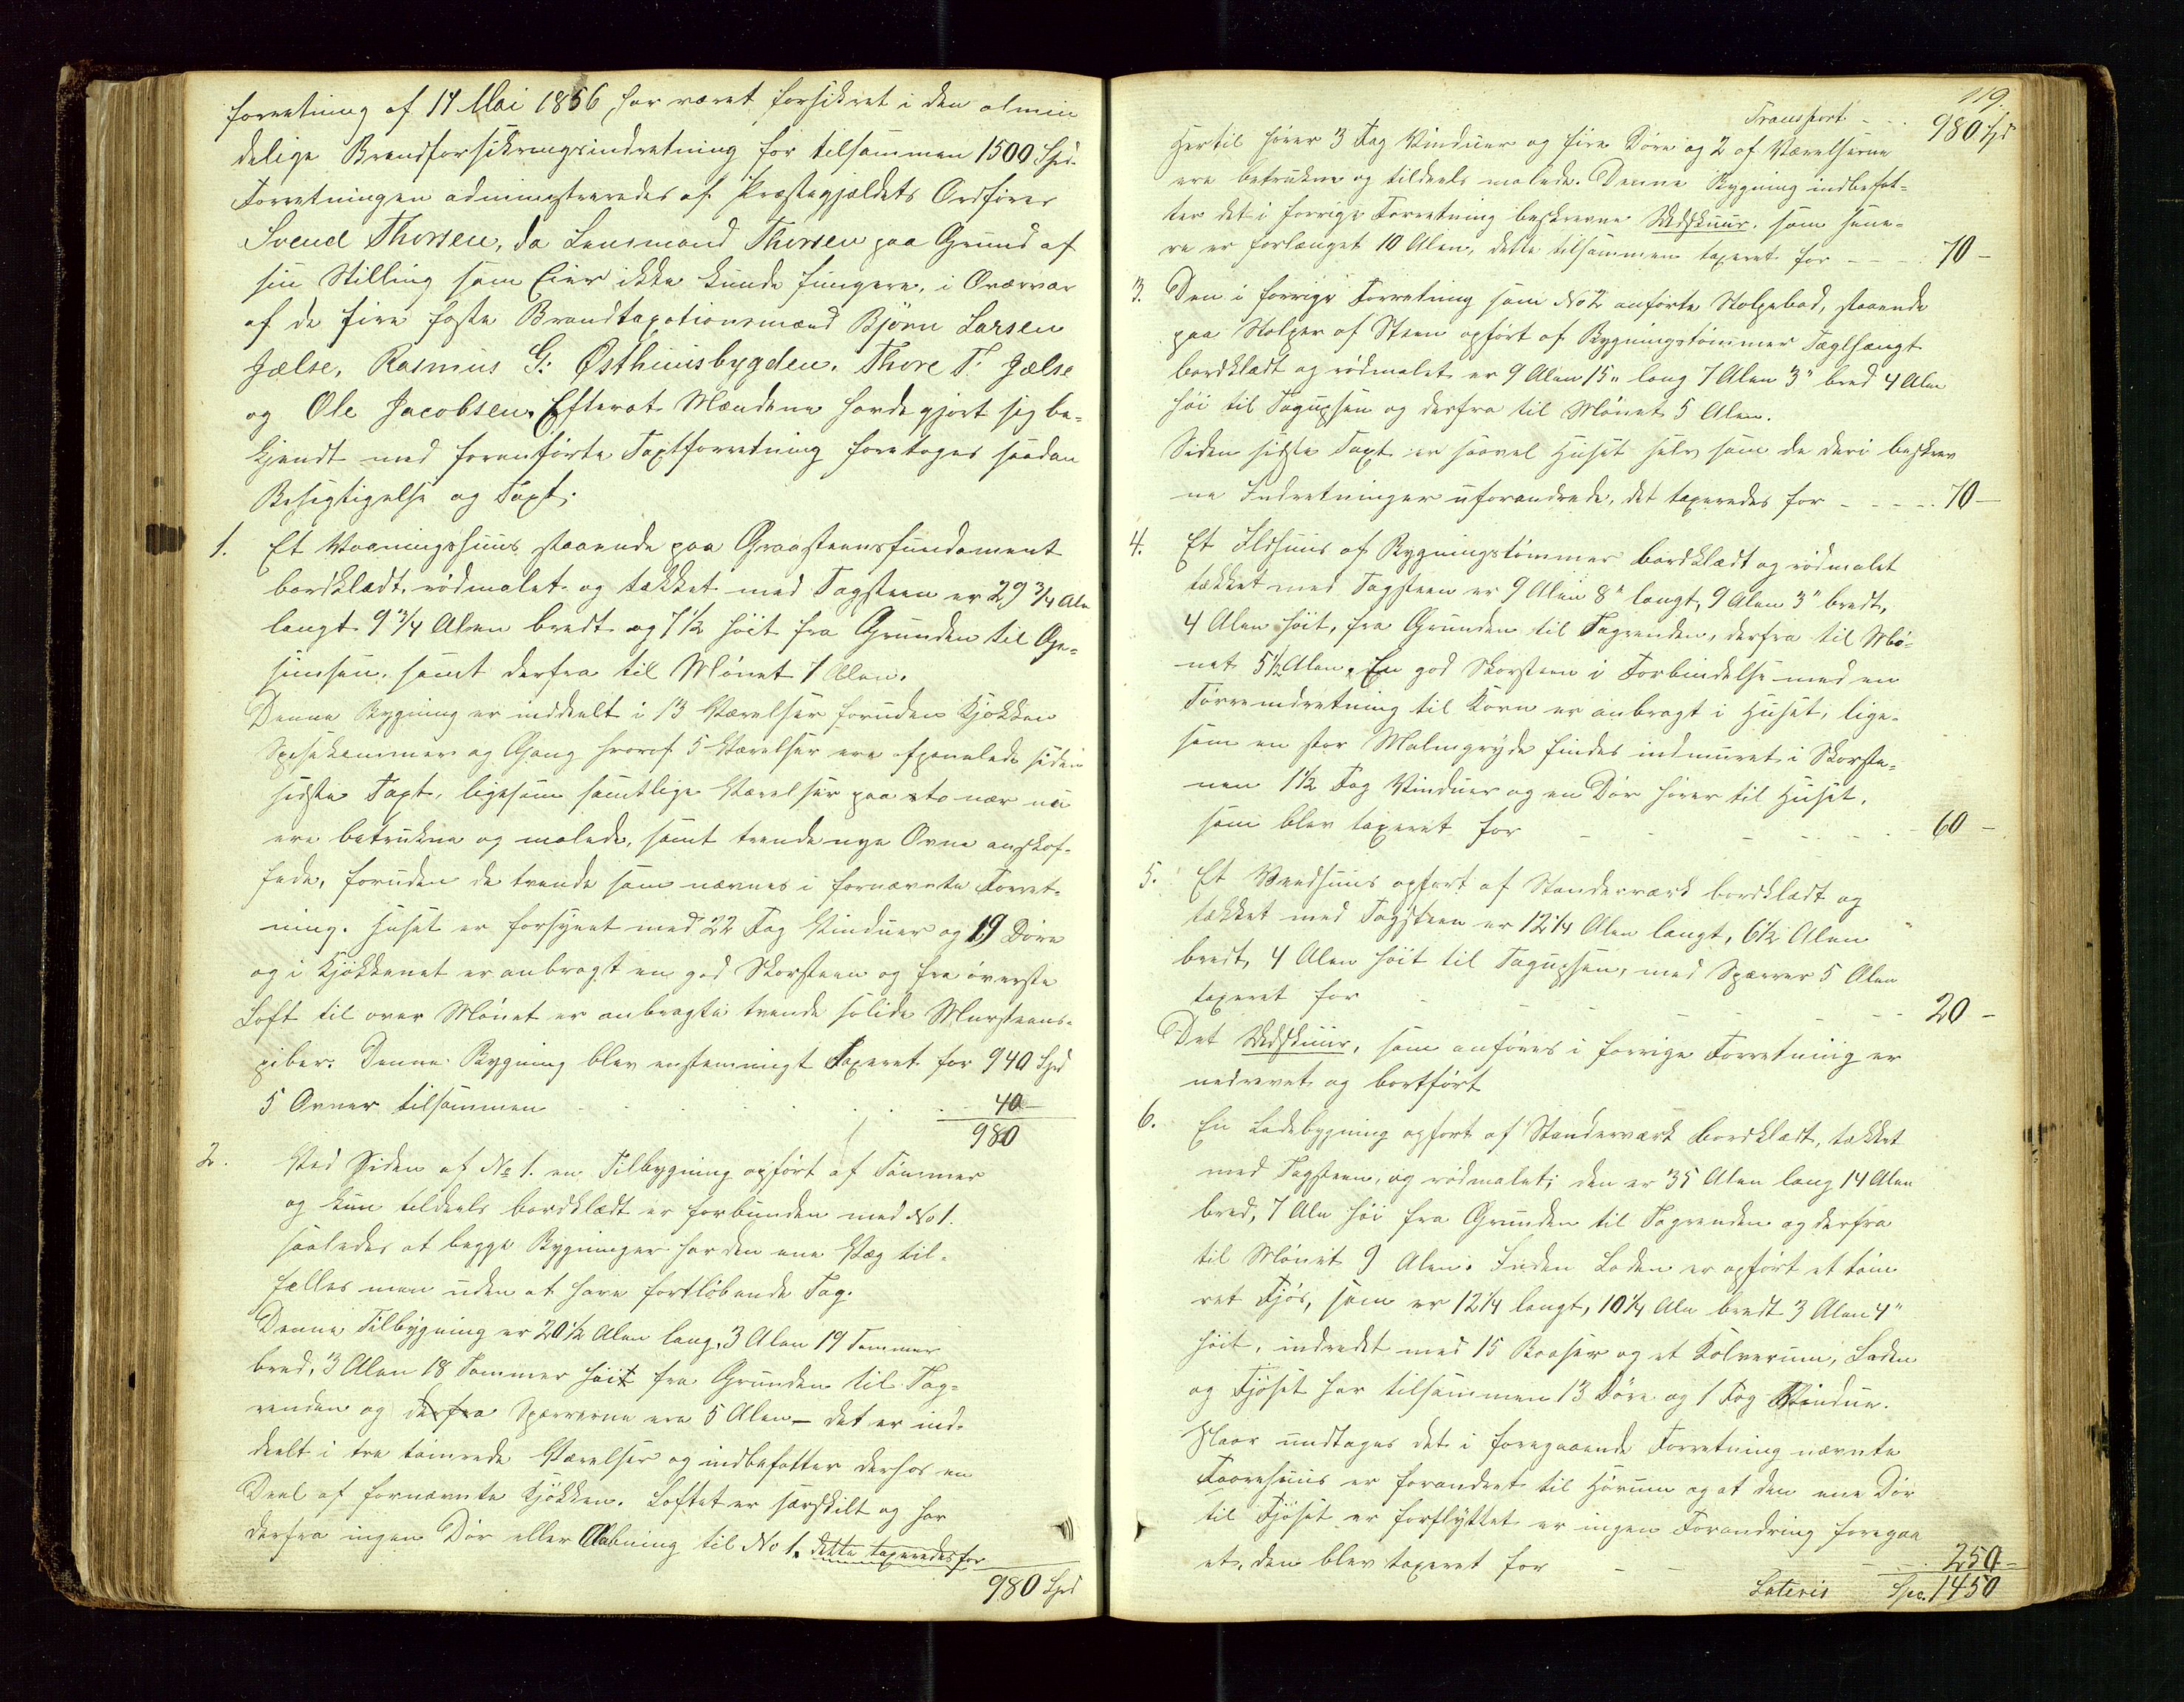 forretning af 14 Mai 1856, har været forsikret i den almin
delige Brandforsikringsindretning for tilsammen 1500 Spd.
Forretningen administreredes af Præstegjældets Ordfører
Svend Thorsen, da Lensmand Thorsen paa Grund af
sin Stilling som Eier ikke kunde fungere, i Overvær
af de fire faste Brandtaxationsmænd Björn Larsen
Jælse, Rasmus G: Østhuusbygden. Thore T. Jælse
og Ole Jacobsen. Efterat Mændene havde gjort sig be-
kjendt med foranförte Taxtforretning foretoges saadan
Besigtigelse og Taxt:
1. Et Vaaningshuus staaende paa Graasteensfundament
bordklædt, rödmalet og tækket med Tagsteen er 29 3/4 Aln
langt 9 3/4 Alen bredt og 7 1/2 höit fra Grunden til Ge-
simsen, samt derfra til Mönet 7 Alen.
Denne Bygning er inddeelt i 13 Værelser foruden Kjökken
Spisekammer og Gang hvoraf 5 Værelser ere afpanelede siden
sidste Taxt, ligesom samtlige Værelser paa to nær nu
ere betrukne og malede, samt trende nye Ovne anskaf-
fede, foruden de tvende som nævnes i fornævnte Forret-
ning. Huset er forsynet med 22 Fag Vinduer og 19 Döre
og i Kjökkenet er anbragt en god Skorsteen og fra överste
Loft til over Mönet er anbragte tvende solide Mursteens-
piber. Denne Bygning blev enstemmigt Taxeret for 940 Spd
5 Ovner tilsammen . . . . . 40
980
2. Ved Siden af No 1. en Tilbygning opført af Tömmer
og kun tildeels bordklædt er forbunden med No 1.
saaledes at begge Bygninger har den ene Væg til-
fælles men uden at have fortlöbende Tag.
Denne Tilbygning er 20 1/2 Alen lang, 3 Alen 19 Tommer
bred, 3 Alen 18 Tommer höit fra Grunden til Tag-
renden og derfra Spærrerne ere 5 Alen – det er ind-
deelt i tre tömrede Værelser og indbefatter derhos en
Deel af fornævnte Kjökken. Loftet er særskilt og har
derfra ingen Dör eller Aabning til No 1. dette taxeredes for
980 Spd
119.
Transport . . . 980 Spd
Hertil hörer 3 Fag Vinduer og fire Döre og 2 af Værelserne
ere betrukne og tildeels malede. Denne Bygning indbefat-
ter det i forrige Forretning beskrevne Vedskuur, som sene-
re er forlænget 10 Alen, dette tilsammen taxeret for - - - - 70 –
3. Den i forrige Forretning som No 2 anförte Stolpebod, staaende
paa Stolper af Steen opfört af Bygningstömmer Taglhængt
bordklædt og rödmalet er 9 Alen 15" lang 7 Alen 3" bred 4 Alen
höi til Tagupsen og derfra til Mönet 5 Alen.
Siden sidste Taxt er saavel Huset selv som de deri beskrev
ne Indretninger uforandrede, det taxeredes for - - - - - 70 –
4. Et Ildhuus af Bygningstömmer bordklædt og rödmalet
tækket med Tagsteen er 9 Alen 8" langt, 9 Alen 3" bredt,
4 Alen höit, fra Grunden til Tagrenden, derfra til Mö-
net 5 1/2 Alen. En god Skorsteen i Forbindelse med en
Törreindretning til Korn er anbragt i Huset, lige-
som en stor Malmgryde findes indmuret i Skorste-
nen 1 1/2 Fag Vinduer og en Dör hörer til Huset,
som blev taxeret for - - - - - - 60 –
5. Et Veedhuus opfört af Standerværk bordklædt og
tækket med Tagsteen er 12 1/4 Alen langt, 6 1/2 Alen
bredt, 4 Alen höit til Tagupsen, med Spærrer 5 Alen
taxeret for - - - - - - 20 –
Det Vedskuur, som anföres i forrige Forretning er
nedrevet og bortfört
6. En Ladebygning opfört af Standerværk bordklædt, tækket
med Tagsteen, og rödmalet; den er 35 Alen lang 14 Alen
bred, 7 Aln höi fra Grunden til Tagrenden og derfra
til Mönet 9 Alen. Inden Laden er opfört et töm
ret Fjös, som er 12 1/4 langt, 10 1/4 Aln bredt 3 Alen 4"
höit, indredet med 15 Baaser og et Kalverum, Laden
og Fjöset har tilsammen 13 Döre og 1 Fag Vindue.
Naar undtages det i foregaaende Forretning nævnte
Faarehuus er forandret til Hörum og at den ene Dör
til Fjöset er forflyttet er ingen Forandring foregaa
et, den blev taxeret for - - - - 250 –
Lateris Spc. 1450